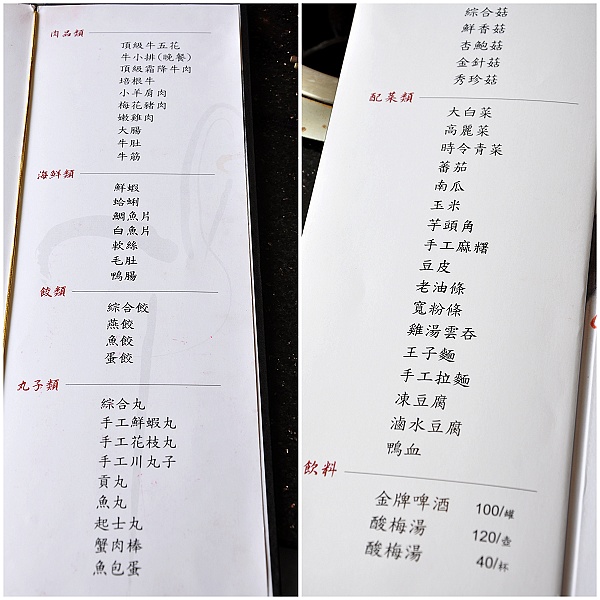 肉品類
頂級牛五花
牛小排(晚餐)
頂級霜降牛肉
培根牛
小羊肩肉
梅花豬肉
嫩雞肉
大腸
牛肚
牛筋
海鮮類
鮮蝦
蛤蜊
鯛魚片
白魚片
軟絲
毛肚
鴨腸
餃類
綜合餃
燕餃
魚餃
蛋餃
丸子類
綜合丸
手工鮮蝦丸
手工花枝丸
手工川丸子
貢丸
魚丸
起士丸
蟹肉棒
魚包蛋
綜合菇
鮮香菇
杏鮑菇
金針菇
秀珍菇
配菜類
大白菜
高麗菜
時令青菜
蕃茄
南瓜
玉米
芋頭角
手工麻糬
豆皮
老油條
寬粉條
雞湯雲吞
王子麵
手工拉麵
凍豆腐
滷水豆腐
鴨血
飲料
金牌啤酒 100/罐
酸梅湯 120/壺
酸梅湯 40/杯